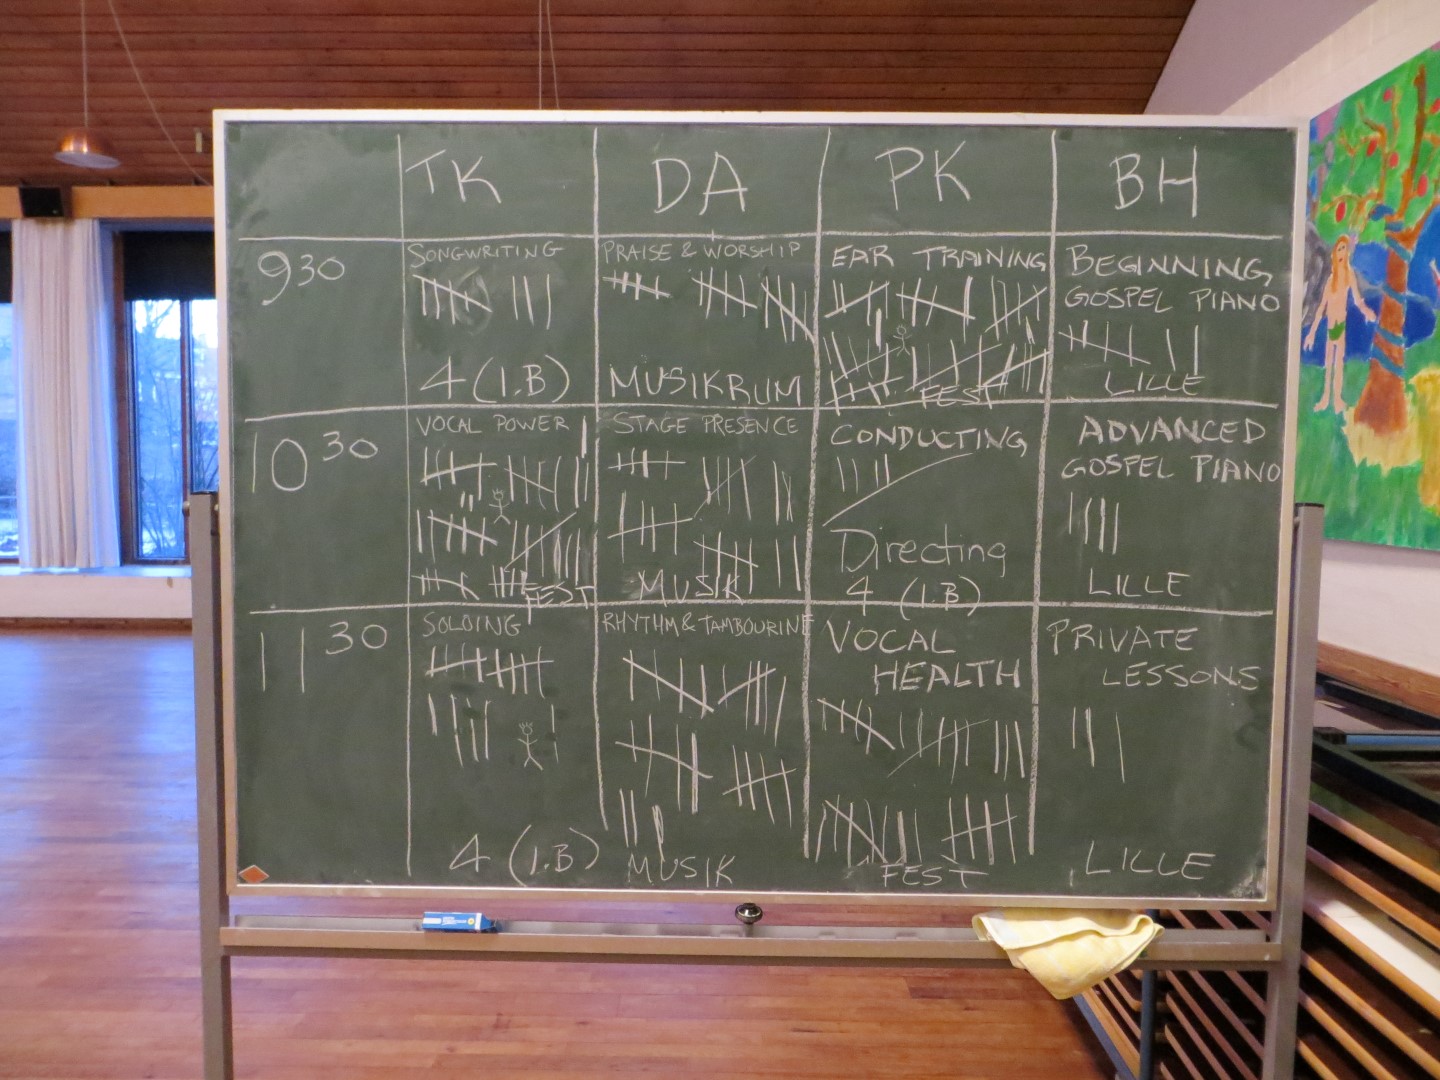 TK DA PK BH
9 30
SONGWRITING
4 (1.B)
PRAISE & WORSHIP
MUSIKRUM
EAR TRAINING
FEST
BEGINNING
GOSPEL PIANO
LILLE
10 30
VOCAL POWER
FEST
STAGE PRESENCE
MUSIK
CONDUCTING
Directing
4 (1.B)
ADVANCED
GOSPEL PIANO
LILLE
11 30
SOLOING
4 (1.B)
RHYTHM & TAMBOURINE
MUSIK
VOCAL
HEALTH
FEST
PRIVATE
LESSONS
LILLE